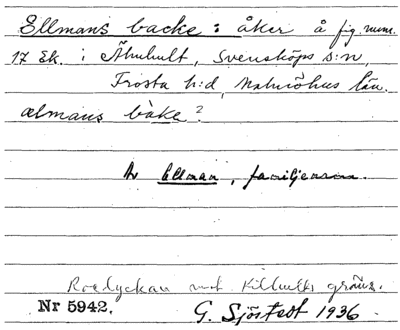 Ellmans backe : åker å fig. num.
17 Ek. i Äkulult, Svensköps s:n,
Frosta h:d, Malmöhus län.
ælmans bàke?
Av Ellman, familjenamn.
Roelyckan mot Killhults gräns.
Nr 5942. G. Sjöstedt 1936